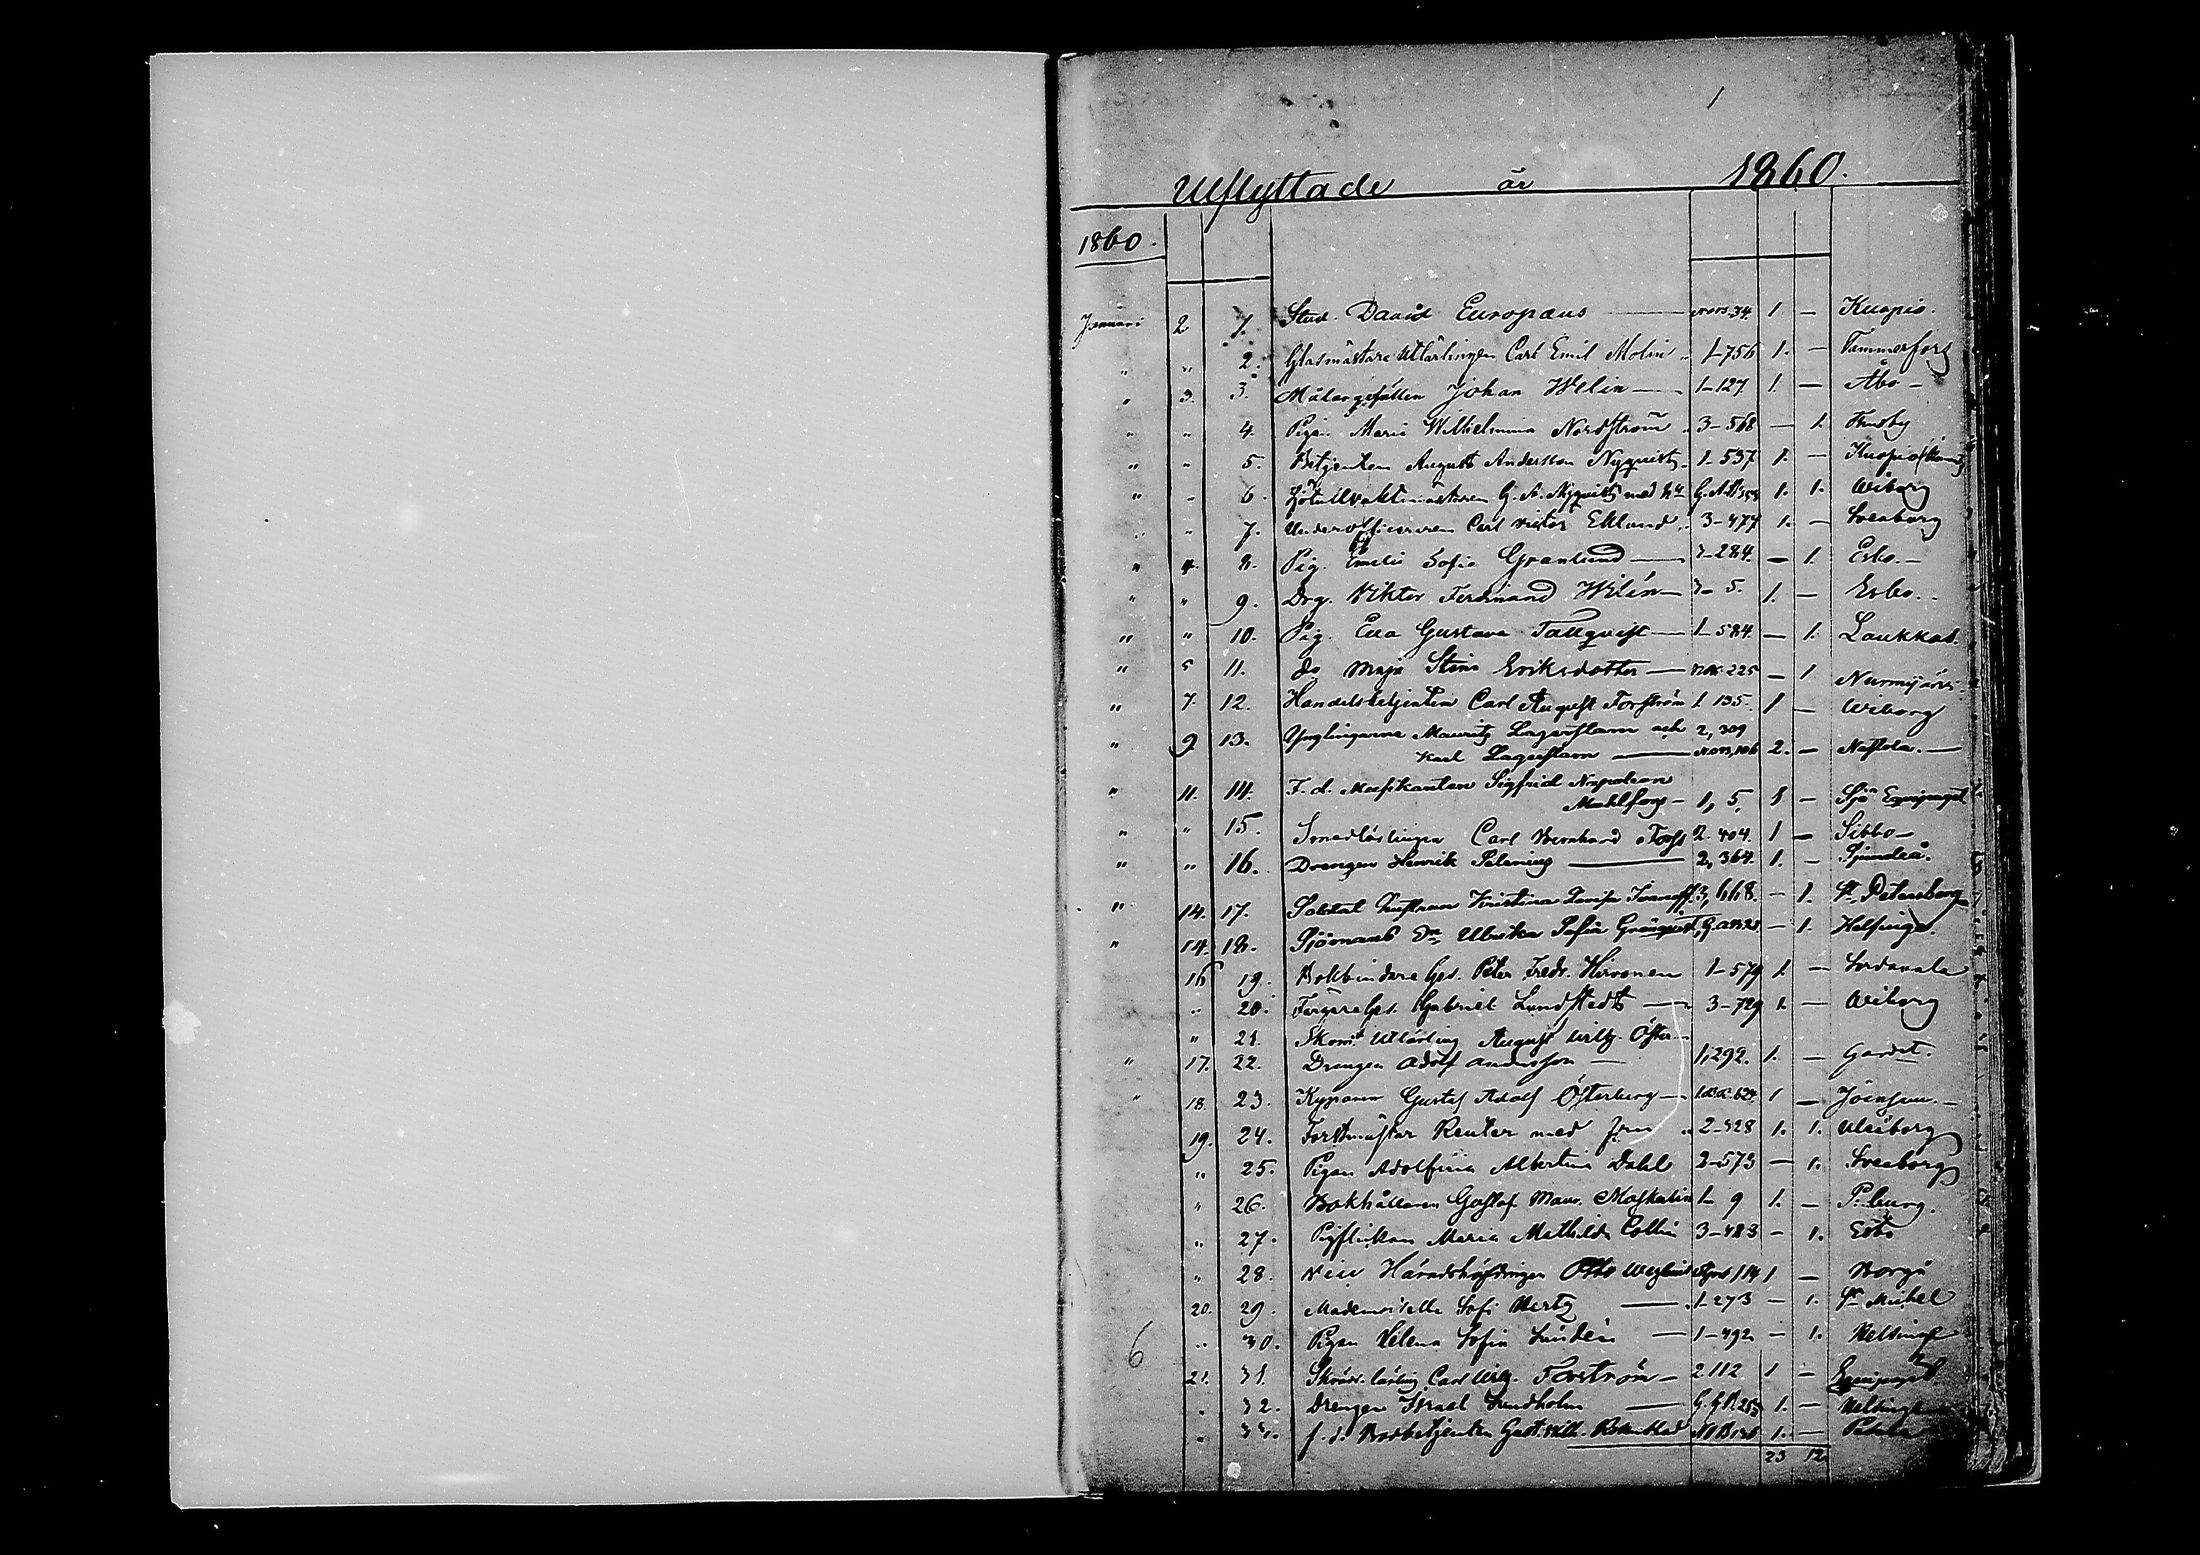 1
Utflyttade år 1860.
1860.
Januari 2 1. Stud. David Europæus 34. 1 — Kuopio.
" " 2. Glasmästare Utlärlingen Carl Emil Molin 1-756 1. — Tammerfors
" 3. 3. Målargesällen Johan Welin 1-127 1. — Åbo —
" " 4. Pigan Maria Wilhelmina Nordström 3-568 — 1.
" " 5. Betjenten August Andersson Nyquist 1-537 1. — Kuopio
" " 6. G. A. Nyquist med h. 1. 1. Wiborg
" " 7. Underofficeren Carl Victor Eklund 3-477 1. — Sveaborg
" 4. 8. Pig. Emilie Sofia Granlund 3-284. — 1. Esbo. —
" " 9. Drg. Viktor Ferdinand Wilén 3-5. 1. — Esbo.
" " 10. Pig. Eva Gustava Tallqvist 1-584. — 1. Laukkas.
" 5 11. do Maja Stina Eriksdotter 225 — 1 Nurmijärvi.
" 7. 12. Handelsbetjenten Carl August Forström 1 135. 1 — Wiborg
" 9 13. Ynglingarne Mauritz Lagerstam och 2, 309
Karl Lagerstam 2. — Nastola. —
" 11. 14. F. d. Musikanten Sigfrid Napoleon
1, 5, 1 — Sjö Equipaget
" " 15. Smedlärlingen Carl Bernhard Forss 2. 404. 1 — Sibbo —
" " 16. Drengen Henrik Pelaning 2, 364. 1. — Sjundeå.
" 14. 17. Soldat hustrun Kristina Lovisa Ivanoff 3, 668. — 1. St Petersborg
" 14. 18. Sjömans Dr Ulrika Sofia Grönqvist — 1. Helsinge.
16 19. Bokbindare Ges. Peter Fredr. Hirvonen 1-579 1. — Sordavala
" 20. Färgare Ges. Gabriel Lundstedt 3-729 1. — Wiborg
" 21. Skom. Utlärling August Wilh. Öster
" 17. 22. Drengen Adolf Andersson 1, 292. 1. —
" 18. 23. Kyparen Gustaf Adolf Österberg 1 — Jöensuu. —
19. 24. Forstmästar Reuter med fru 2-328 1. 1. Uleåborg
" 25. Pigan Adolfina Albertina Dahl 2-573 — 1. Sveaborg
" 26. Bokhållaren Gustaf Maur. Moskalin 1-9 1. — P.burg.
" 27. Pigflickan Maria Mathilda Collin 3-483 — 1. Esbo
" 28. Vice Häradshöfdingen Otto 114 1 — Borgå
20. 29. Mademoiselle Sofi Hertz 1-273 — 1. St Michel
" 30. Pigan Helena Sofia Lindén 1-492 — 1. Helsinge
6
21. 31. Skrädd. lärling Carl Wilh. Forström 2 112 1 — Equipaget
" 32. Drengen Israel Lundholm 1. — Helsinge
" 33. f. d. Bodbetjenten Gust. Wilh. 1. —
23 12